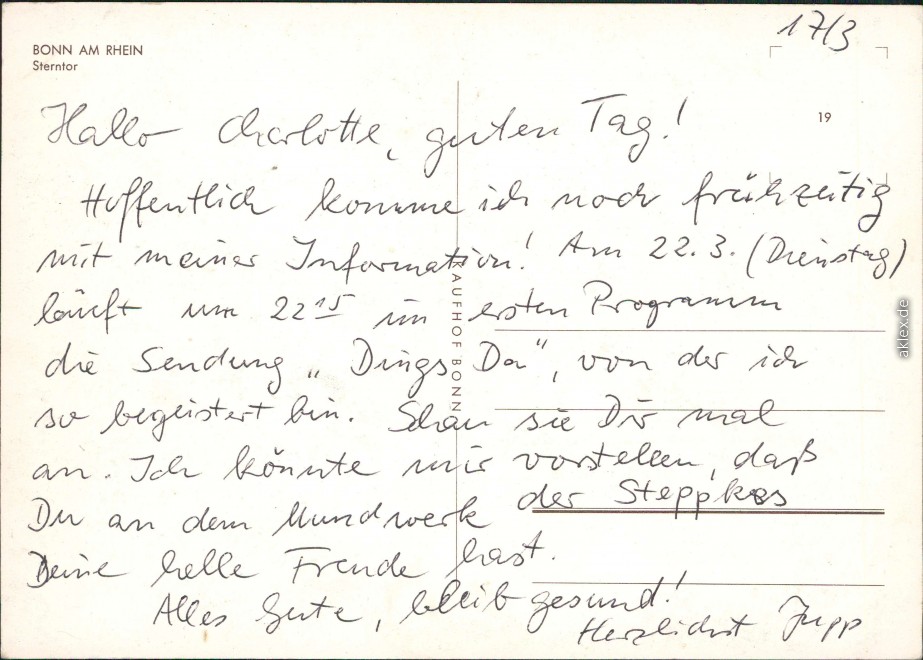 17/3
BONN AM RHEIN
Sterntor
19
Hallo Charlotte, guten Tag!
Hoffentlich komme ich noch frühzeitig
mit meiner Information! Am 22.3. (Dienstag)
läuft um 22 15 im ersten Programm
die Sendung „Dings Da“, von der ich
so begeistert bin. Schau sie Dir mal
an. Ich könnte mir vorstellen, daß
Du an dem Mundwerk der Steppkes
Deine helle Freude hast.
Alles Gute, bleib gesund!
Herzlichst Jupp
KAUFHOF BONN
aklex.de